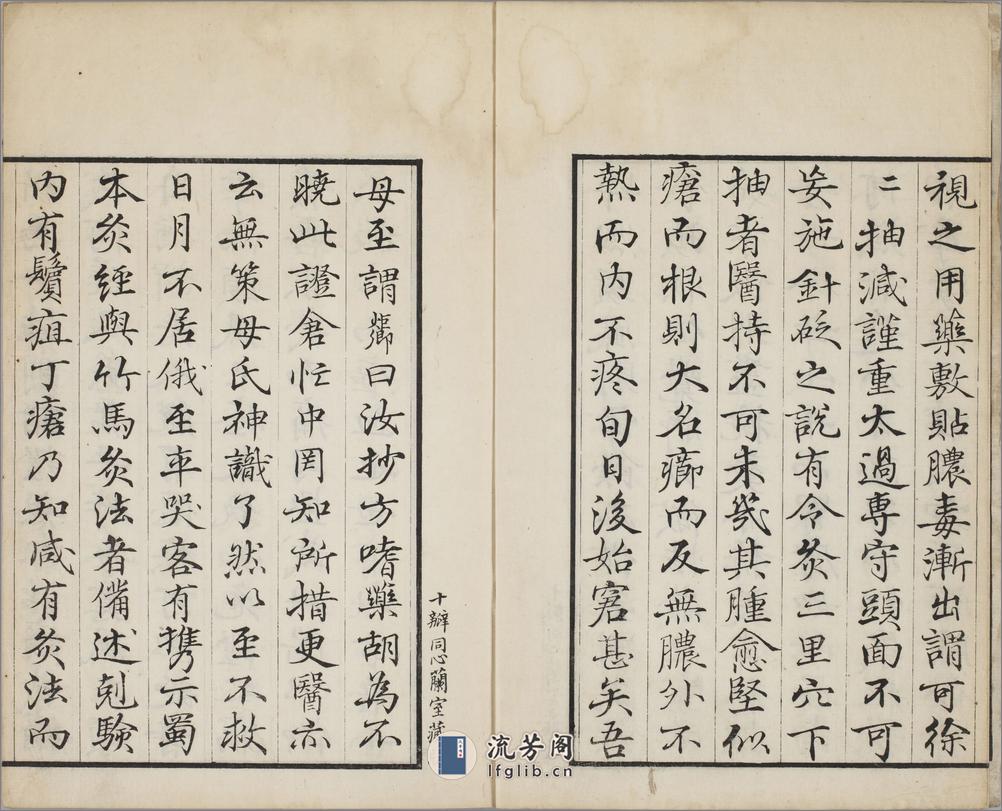 視之用藥敷貼膿毒漸出謂可徐
二抽減謹重太過專守頭面不可
妄施針砭之說有令灸三里穴下
抽者醫持不可未幾其腫愈堅似
瘡而根則大名癤而反無膿外不
熱而內不疼旬日後始窘甚矣吾
母至謂癤曰汝抄方嗜藥胡為不
曉此證倉忙中罔知所措更醫亦
云無策母氏神識了然以至不救
日月不居俄至卒哭客有携示蜀
本灸經與竹馬灸法者備述剋驗
內有鬢疽丁瘡乃知咸有灸法而
十瓣同心蘭室藏
流芳阁
lfglib.cn